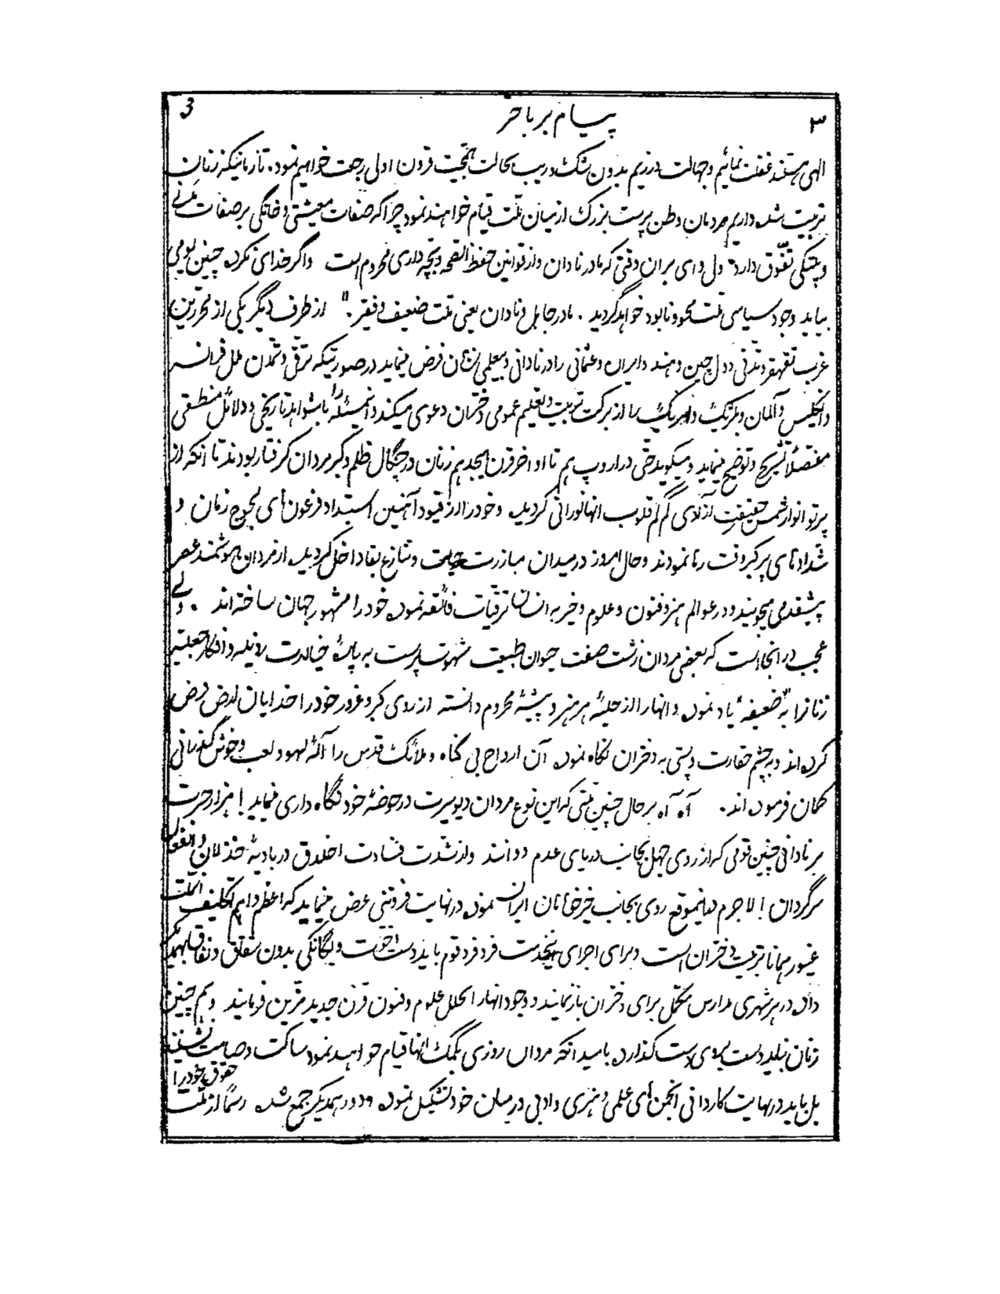 3 پیام برباختر ۳
الهی هستند غفلت نمائیم و جهالت ورزیم بدون شک و ریب بحالت همجیت قرون اولی رجعت خواهیم نمود. تا زمانیکه زنان
تربیت شده داریم مردمان وطن پرست بزرگ از میان ملت قیام خواهند نمود چراکه صفات معیشتی و خانگی بر صفات ملّتی
و پلتیکی تفوّق دارد ولی وای بر آن وقتی که مادر نادان و از قوانین حفظ الصحه و بچّه داری محروم است و اگر خدای نکرده چنین یومی
بیاید وجود سیاسی ملت محو و نابود خواهد گردید. مادر جاهل و نادان یعنی ملت ضعیف و فقیر." از طرف دیگر یکی از محررّین
غرب تقهقر و تدنّی دول چین و هند و ایران و عثمانی را در نادانی و بیعلمی زنان فرض مینماید در صورتیکه ترقّی و تمدن ملل فرانسه
و انگلیس و آلمان و بلژیک و امریک را از برکت تربیت و تعلیم عمومی دختران دعوی میکند و این مسئله را با شواهد تاریخی و دلائل منطقی
مفصّلاً تشریح و توضیح مینماید و میگوید حتی در اروپ هم تا اواخر قرن هیجدهم زنان در چنگال ظلم و کبر مردان گرفتار بودند تا آنکه از
پرتو انوار شمس حقیقت آزادی کم کم قلوب آنها نورانی گردیده و خود را از قیود آهنین استبداد فرعون های لجوج زمان و
شدادهای پر کبر وقت رها نمودند و حال امروز در میدان مبارزت حیات و تنازع بقا داخل گردیده از مردان هوشمند عصر
پیشقدمی میجویند و در عوالم هنر و فنون و علوم و خیر به انسان ترقیات فائقه نموده خود را مشهور جهان ساخته اند. ولی
عجب در اینجا است که بعضی مردان زشت صفت حیوان طبیعت شهوات پرست به پاره خیالات رذیله و افکار جعلیّه
زنانرا به "ضعیفه" یاد نموده و آنها را از حلیه هر هنر و پیشه محروم دانسته از روی کبر و غرور خود را خدایان ارض فرض
کرده اند و بچشم حقارت و پستی به دختران نگاه نموده آن ارواح بی گناه و ملائک قدس را آلهٔ لهو و لعب و خوش گذرانی
گمان فرموده اند. آه آه بر حال چنین ملّتی که این نوع مردان دیو سیرت در حوضهٔ خود نگاه داری نماید! هزار حسرت
بر نادانی چنین قومی که از روی جهل بجانب دریای عدم دوانند و از شدت فسادت اخلاق در بادیهٔ خذلان و انفعال
سرگردان! لاجرم در این موقع روی بجانب خیر خواهان ایران نموده در نهایت فروتنی عرض مینماید که اعظم و اهم تکلیف ملّت
غیور همانا تربیت دختران است و برای اجرای این خدمت فرد فرد قوم باید دست اخوّت و یگانگی بدون تملّق و نفاق بهمدیگر
داده در هر شهری مدارس مکمّل برای دختران باز نمایند و وجود آنها را بحلل علوم و فنون قرن جدید مزّین فرمایند و هم چنین
زنان نباید دست بروی دست گذارده بامید آنکه مردان روزی بکمک آنها قیام خواهند نمود ساکت و صامت نشینند
بل باید در نهایت کاردانی انجمن های علمی و هنری و ادبی در میان خود تشکیل نموده و دور همدیگر جمع شده رسماً از ملت حقوق خود را